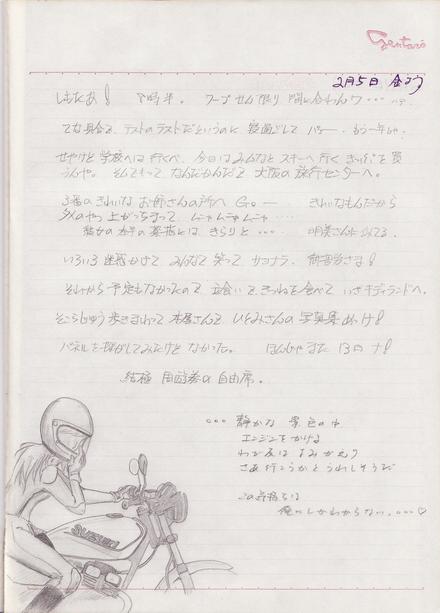 Gentaro
2月5日 金よう
しもたあ! 8時半。 ワープせん限り 間に合わんワ…
てな具合で、テストのテストだというのに 寝過ごして パァー。もう一年かいな
せやけど 学校へは行くべ、今日は みんなと スキーへ行く きっぷを買
うんや。そんでもって なんだかんだで 大阪の旅行センターへ。
3番のきれいなお姉さんの所へ Go— きれいなもんだから
ムニャムニャムニャ…
彼女の左手の薬指には きらりと… 明美さんに似てる。
いろいろ 迷惑かけて みんなで 笑って サヨナラ。御苦労さま!
それから 予定もなかったので 立食いで きつねを食べて いざ キディランドへ。
そこらじゅう 歩きまわって 本屋さんで ひとみさんの 写真集めっけ!
パネルを探がしてみたけど なかった。 ほんじゃまた 13日ナ!
結極 周遊券の自由席。
… 静かな 景色の中
エンジンをかける
わが友は よみがえり
さあ 行こうかと うれしそうだ
この気持ちは
俺にしかわからない。…♡
SUZUKI